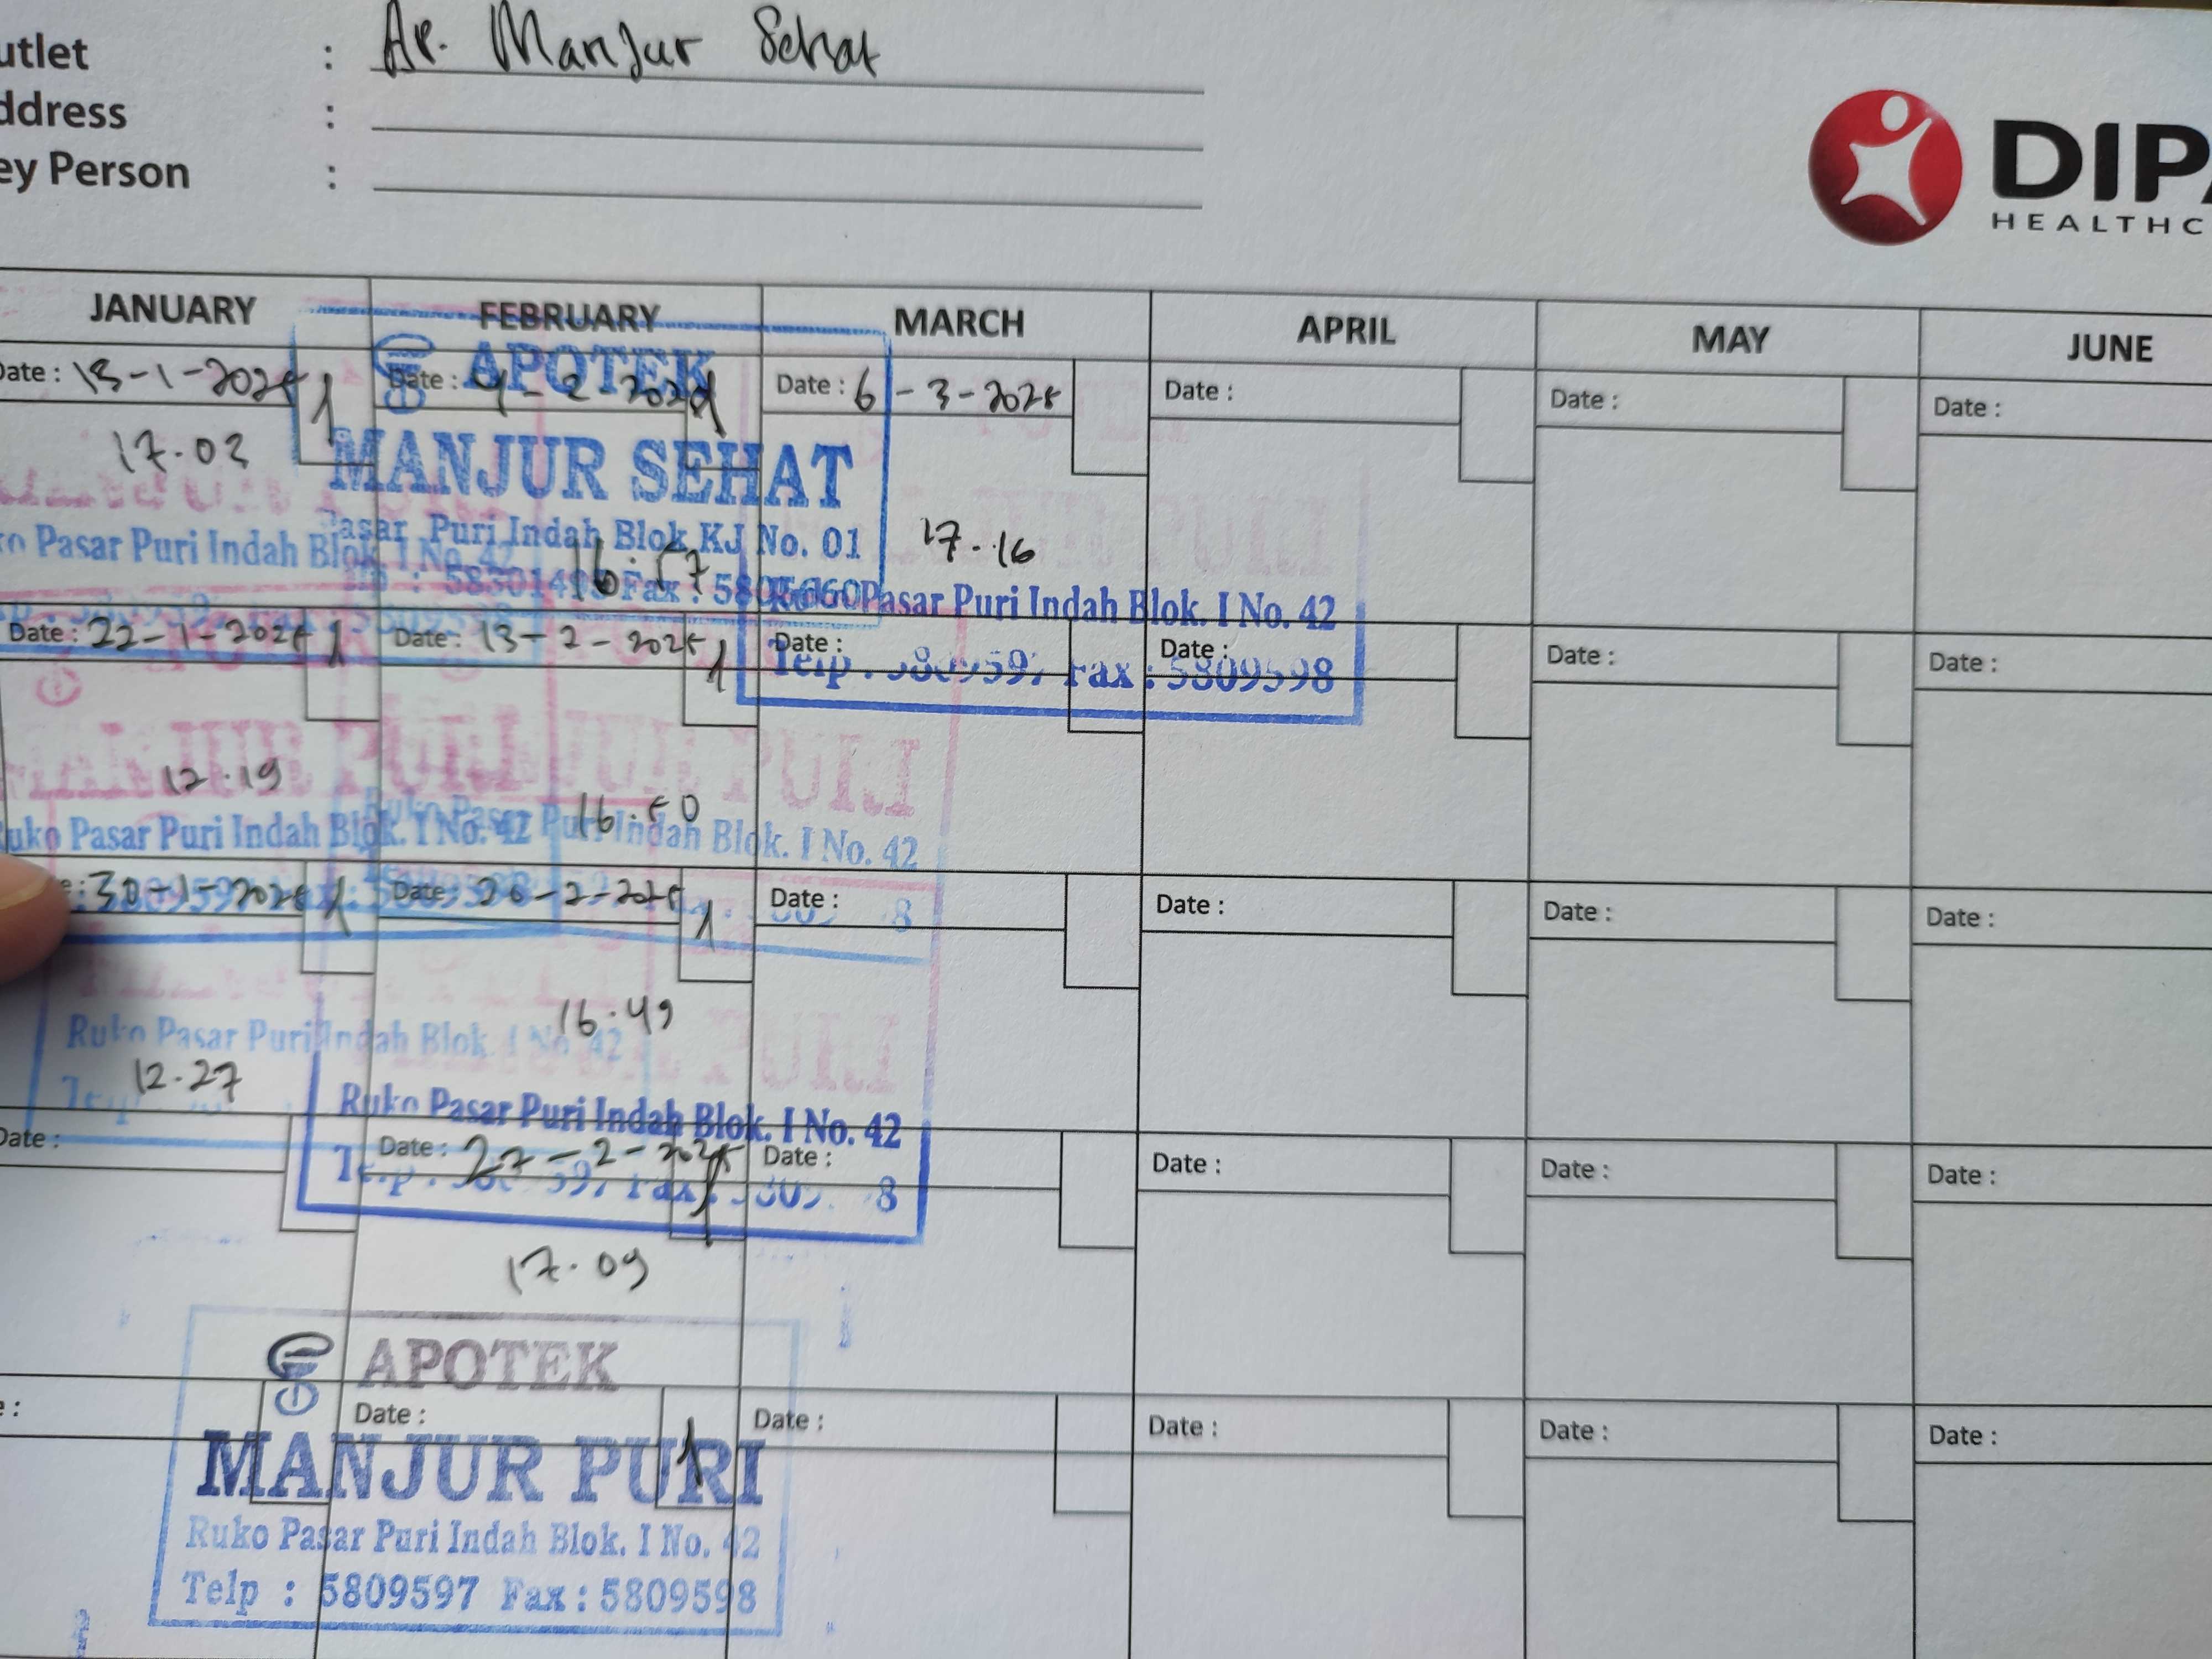 utlet : Ap. Manjur Sehat
ddress :
ey Person :
DIPA
HEALTHC
JANUARY FEBRUARY MARCH APRIL MAY JUNE
Date : 13-1-2025 1 Date : 4-2-2025 1 Date : 6-3-2025 Date : Date : Date :
17.02
APOTEK
MANJUR SEHAT
Pasar Puri Indah Blok KJ No. 01
Fax : 5805660
16.57
17.16
ko Pasar Puri Indah Blok. I No. 42
Ruko Pasar Puri Indah Blok. I No. 42
Telp : 5809597 Fax : 5809598
Date : 22-1-2025 1 Date : 13-2-2025 1 Date : Date : Date : Date :
12.19 16.50
MANJUR PURI
PURI
uko Pasar Puri Indah Blok. I No. 42
Ruko Pasar Puri Indah Blok. I No. 42
e : 30-1-2025 1 Date : 20-2-2025 1 Date : Date : Date : Date :
16.49
Ruko Pasar Puri Indah Blok. I No. 42
12.27
Ruko Pasar Puri Indah Blok. I No. 42
Date : Date : 27-2-2025 1 Date : Date : Date : Date :
17.09
APOTEK
e : Date : 1 Date : Date : Date : Date :
MANJUR PURI
Ruko Pasar Puri Indah Blok. I No. 42
Telp : 5809597 Fax : 5809598